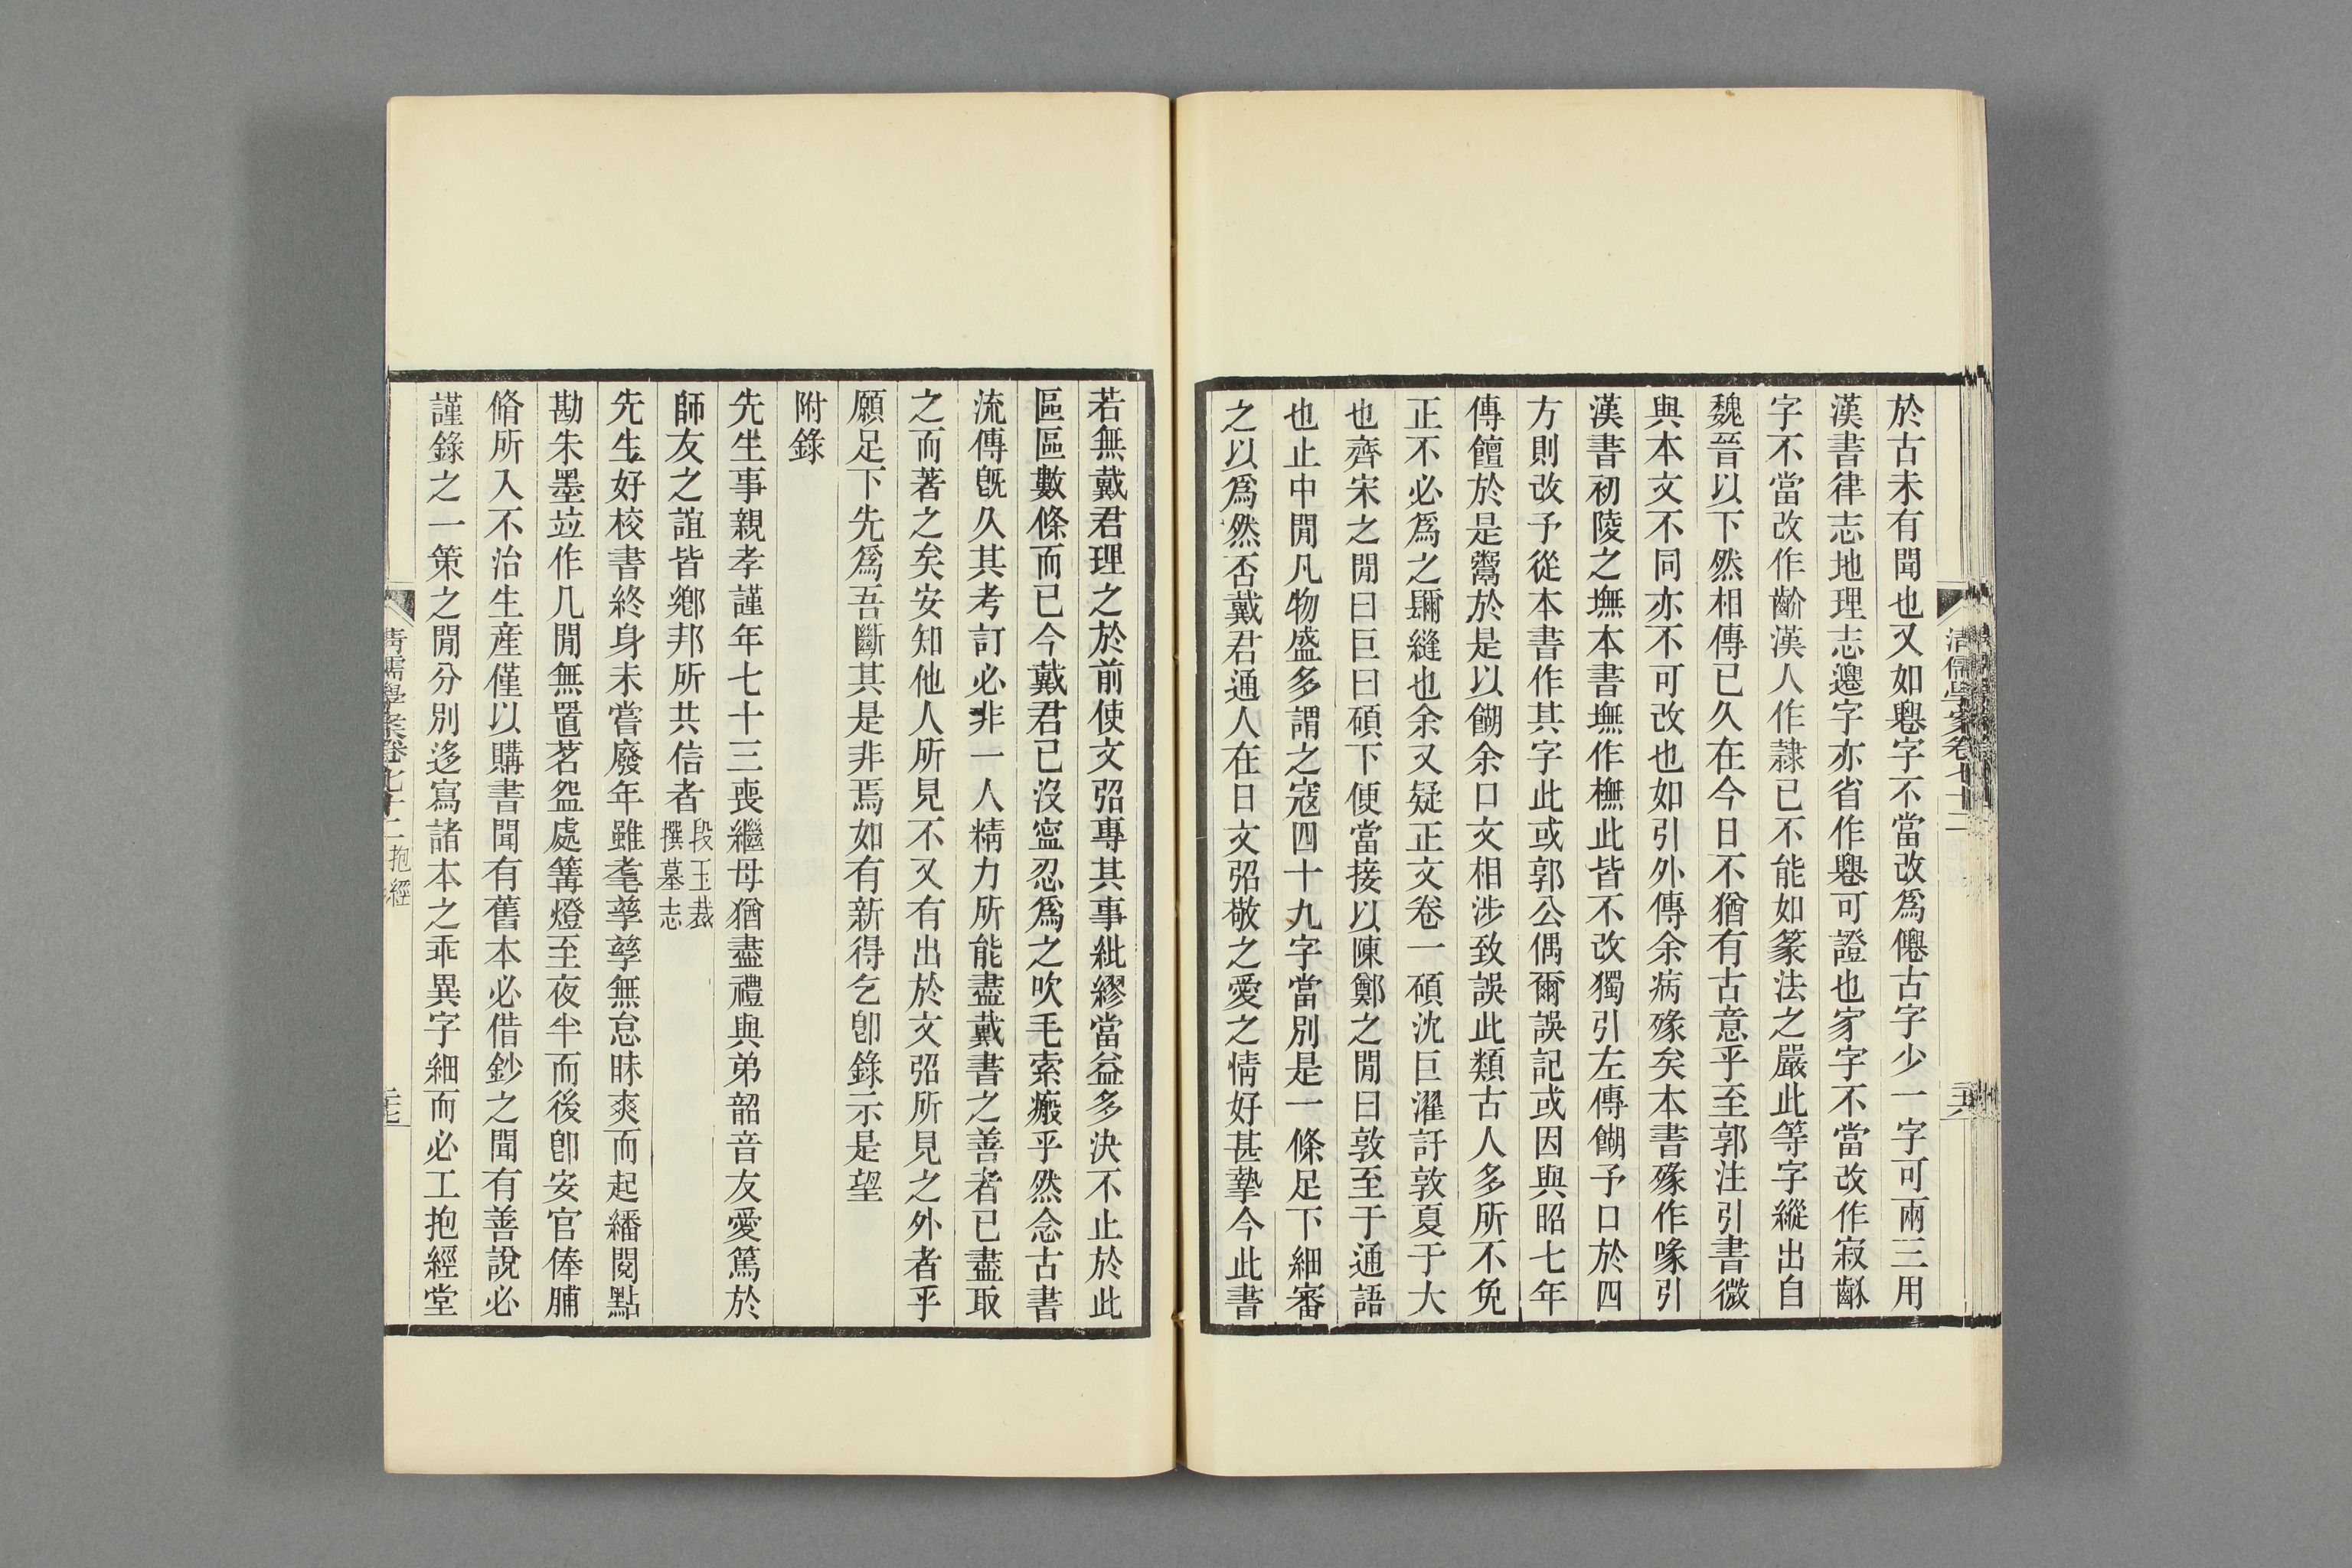 清儒學案卷七十二
於古未有聞也又如𠨧字不當改爲僊古字少一字可兩三用
漢書律志地理志䙴字亦省作𠨧可證也家字不當改作寂齝
字不當改作齡漢人作隸已不能如篆法之嚴此等字縱出自
魏晉以下然相傳已久在今日不猶有古意乎至郭注引書微
與本文不同亦不可改也如引外傳余病殩矣本書殩作喙引
漢書初陵之橅本書橅作撫此皆不改獨引左傳餬予口於四
方則改予從本書作其字此或郭公偶爾誤記或因與昭七年
傳饘於是鬻於是以餬余口文相涉致誤此類古人多所不免
正不必爲之彌縫也余又疑正文卷一碩沈巨濯訏敦夏于大
也齊宋之閒曰巨曰碩下便當接以陳鄭之閒曰敦至于通語
也止中閒凡物盛多謂之寇四十九字當別是一條足下細審
之以爲然否戴君通人在日文弨敬之愛之情好甚摯今此書
若無戴君理之於前使文弨專其事紕繆當益多決不止於此
區區數條而已今戴君已沒寍忍爲之吹毛索瘢乎然念古書
流傳旣久其考訂必非一人精力所能盡戴書之善者已盡取
之而著之矣安知他人所見不又有出於文弨所見之外者乎
願足下先爲吾斷其是非焉如有新得乞卽錄示是望
附錄
先生事親孝謹年七十三喪繼母猶盡禮與弟韶音友愛篤於
師友之誼皆鄉邦所共信者段玉裁撰墓志
先生好校書終身未嘗廢年雖耄孳孳無怠昧爽而起繙閱點
勘朱墨竝作几閒無置茗盌處篝燈至夜半而後卽安官俸脯
脩所入不治生產僅以購書聞有舊本必借鈔之聞有善說必
謹錄之一策之閒分別迻寫諸本之乖異字細而必工抱經堂
清儒學案卷七十二 抱經